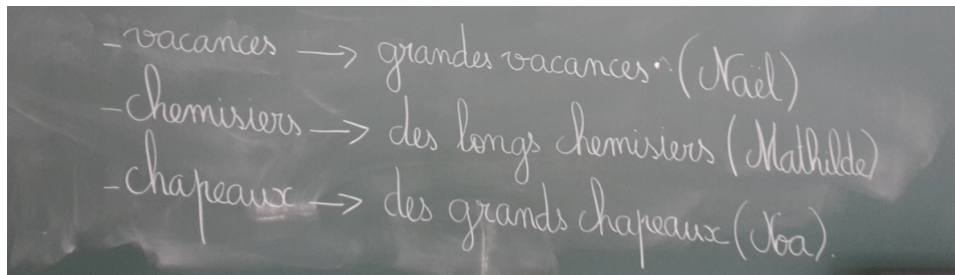 - vacances → grandes vacances. (Naël)
- chemisiers → des longs chemisiers (Mathilde)
- chapeaux → des grands chapeaux (Noa).